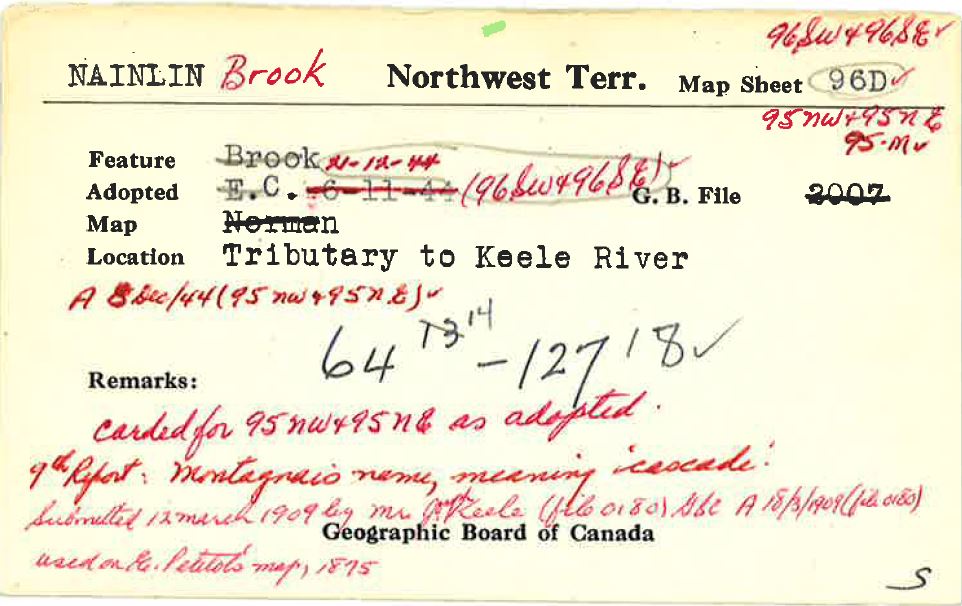 96SW+96SE✓
NAINLIN Brook Northwest Terr. Map Sheet 96D✓
95NW+95NE
95-M✓
Feature Brook 21-12-44
Adopted E.C. 6-11-44 (96SW+96SE)✓ G. B. File 2007
Map Norman
Location Tributary to Keele River
A 8 Dec/44 (95NW+95NE)✓
64 13 14 - 127 18✓
Remarks:
carded for 95NW+95NE as adopted.
9th Report: Montagnais name, meaning 'cascade'.
Submitted 12 March 1909 by Mr. Keele (file 0180) GBC A 18/3/1909 (file 0180)
Geographic Board of Canada
used on Petitot's map, 1875
S